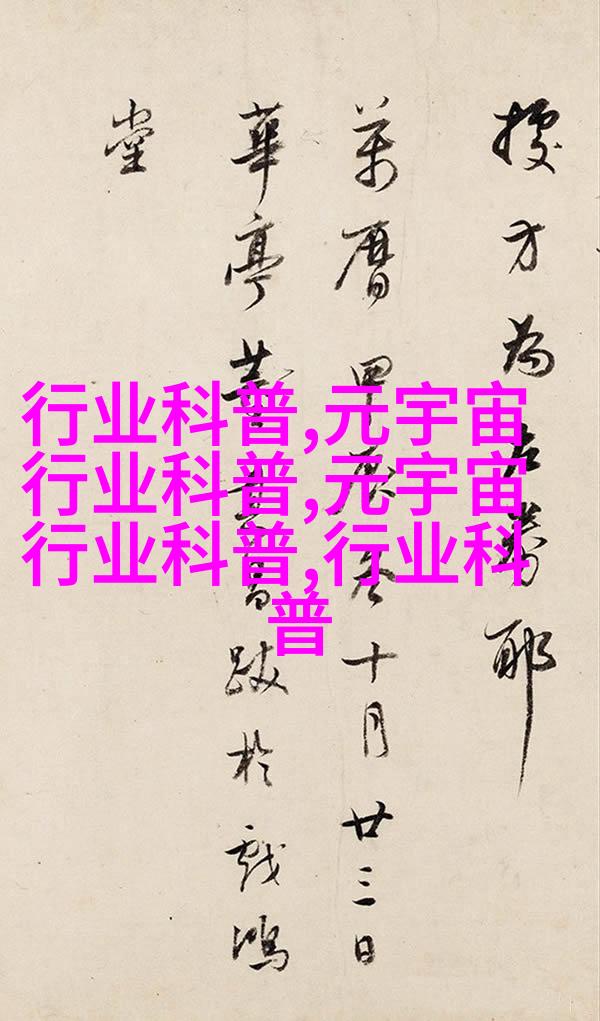 方為右券耶
萬曆甲辰冬十月廿三日
華亭董其昌跋於戲鴻
堂
行业科普,元宇宙
行业科普,元宇宙
行业科普,行业科
普